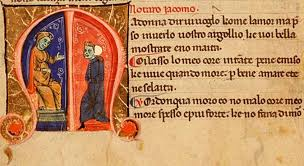 Notaro Jacomo
Adonna dir uiuoglo kome lamor ma p
so inuerlo uostro argollio ke uoi bella
mostrate eno maita
Oi lasso lo meo core intāte pene emiso
ke uiue quando more. p bene amare ete
neselaita
Ordonqua moro eo no malo core meo
more spesso epiu forte. ke no faria dimo